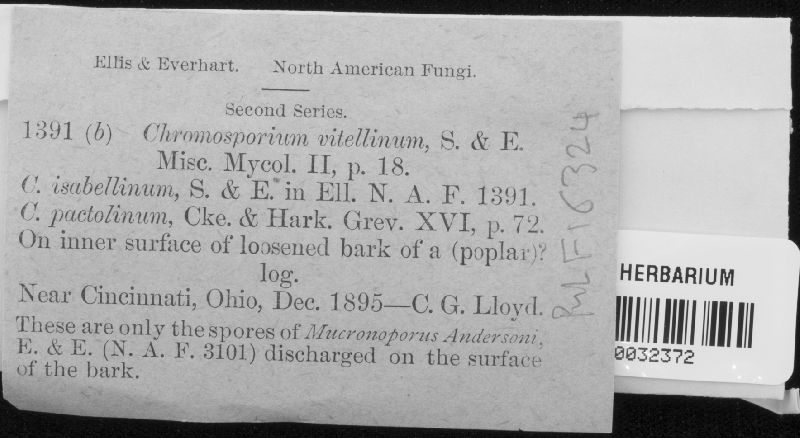 Ellis & Everhart. North American Fungi.
Second Series.
1391 (b) Chromosporium vitellinum, S. & E.
Misc. Mycol. II, p. 18.
C. isabellinum, S. & E. in Ell. N. A. F. 1391.
C. pactolinum, Cke. & Hark. Grev. XVI, p. 72.
On inner surface of loosened bark of a (poplar)?
log.
Near Cincinnati, Ohio, Dec. 1895—C. G. Lloyd.
These are only the spores of Mucronoporus Andersoni,
E. & E. (N. A. F. 3101) discharged on the surface
of the bark.
PuLF16324
HERBARIUM
0032372